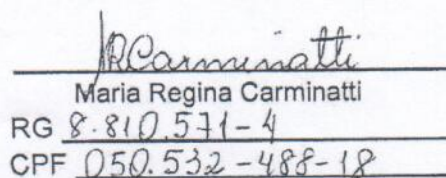 MRCarminatti
Maria Regina Carminatti
RG 8.810.571-4
CPF 050.532-488-18